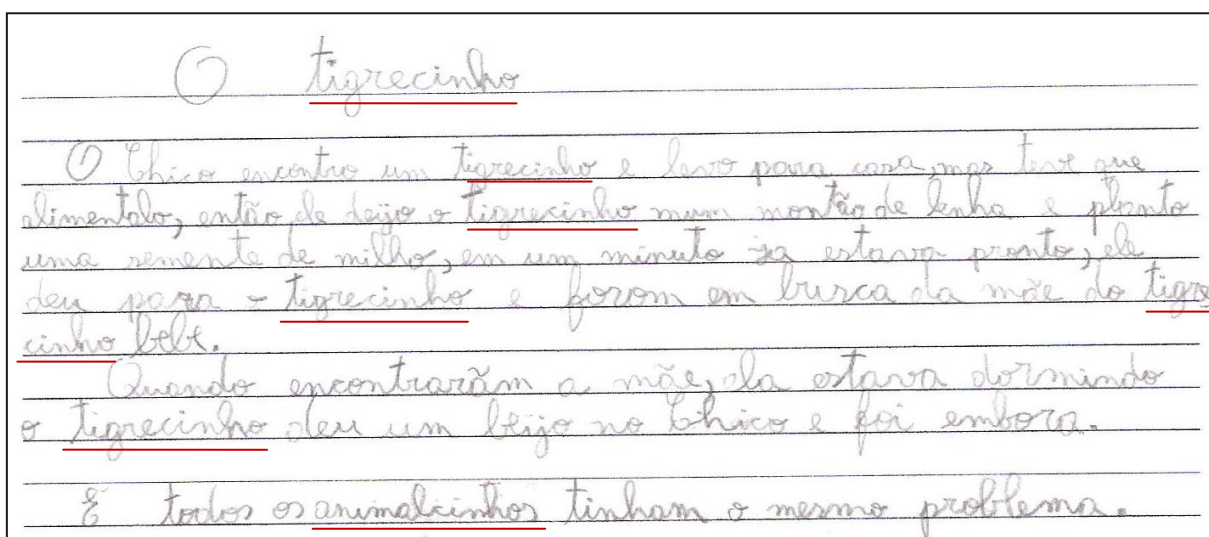 O tigrecinho
O Chico encontro um tigrecinho e levo para casa, mas teve que
alimentalo, então ele deijo o tigrecinho num montão de lenha e planto
uma semente de milho, em um minuto ja estava pronto, ele
deu para o tigrecinho e forom em busca da mãe do tigre
cinho bebe.
Quando encontrarãm a mãe, ela estava dormindo
o tigrecinho deu um beijo no Chico e foi embora.
E todos os animalcinhos tinham o mesmo problema.